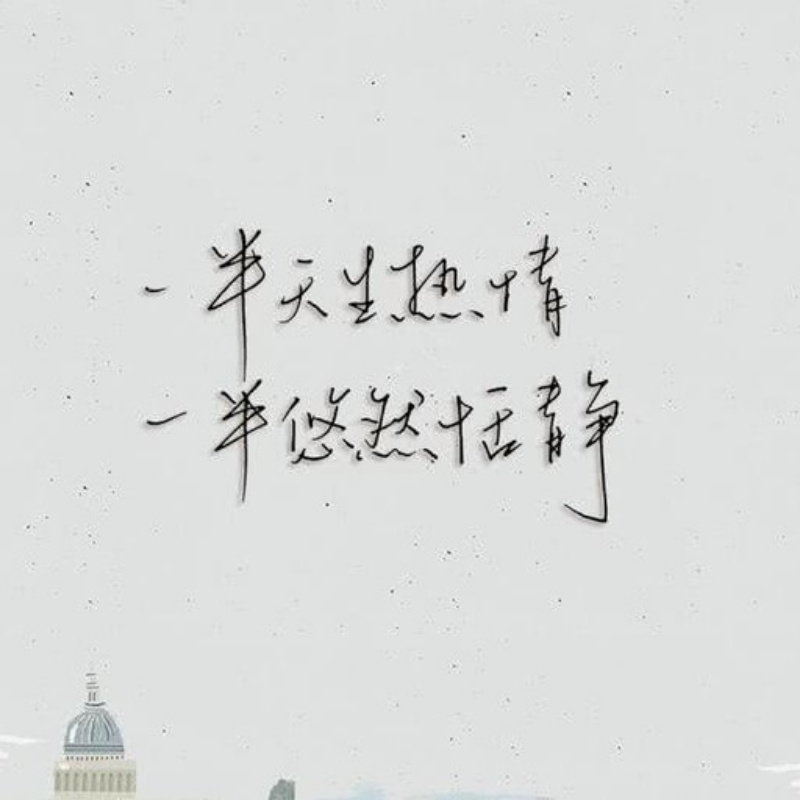 一半天生热情
一半悠然恬静